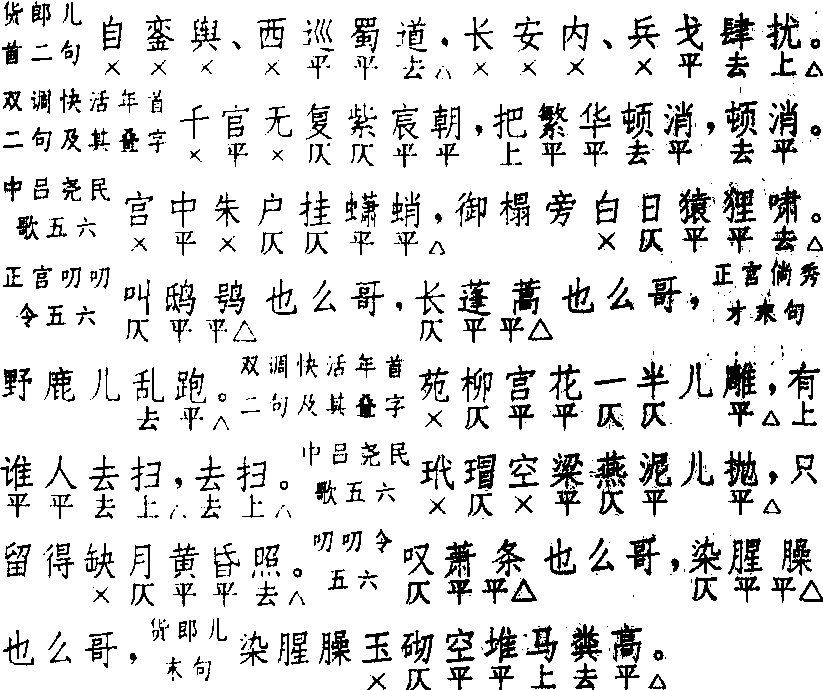 货郎儿首二句 自銮舆、西巡蜀道,长安内、兵戈肆扰。
× × × × 平 平 去 △ × × × × 平 去 上 △
双调快活年首二句及其叠字 千官无复紫宸朝,把繁华顿消,顿消。
× 平 × 仄 仄 平 平 上 平 平 去 平 去 平
中吕尧民歌五六 宫中朱户挂蟏蛸,御榻旁白日猿狸啸。
× 平 × 仄 仄 平 平 △ × 仄 平 平 去 △
正宫叨叨令五六 叫鸱鸮也么哥,长蓬蒿也么哥, 正宫倘秀才末句
仄 平 平 △ 仄 平 平 △
野鹿儿乱跑。 双调快活年首二句及其叠字 苑柳宫花一半儿雕,有
去 平 △ × 仄 平 平 仄 仄 平 △ 上
谁人去扫,去扫。 中吕尧民歌五六 玳瑁空梁燕泥儿抛,只
平 平 去 上 △ 去 上 △ × 仄 × 平 仄 平 平 △
留得缺月黄昏照。 叨叨令五六 叹萧条也么哥,染腥臊
× 仄 平 平 去 △ 仄 平 平 △ 仄 平 平 △
也么哥, 货郎儿末句 染腥臊玉砌空堆马粪高。
× 仄 平 平 上 去 平 △